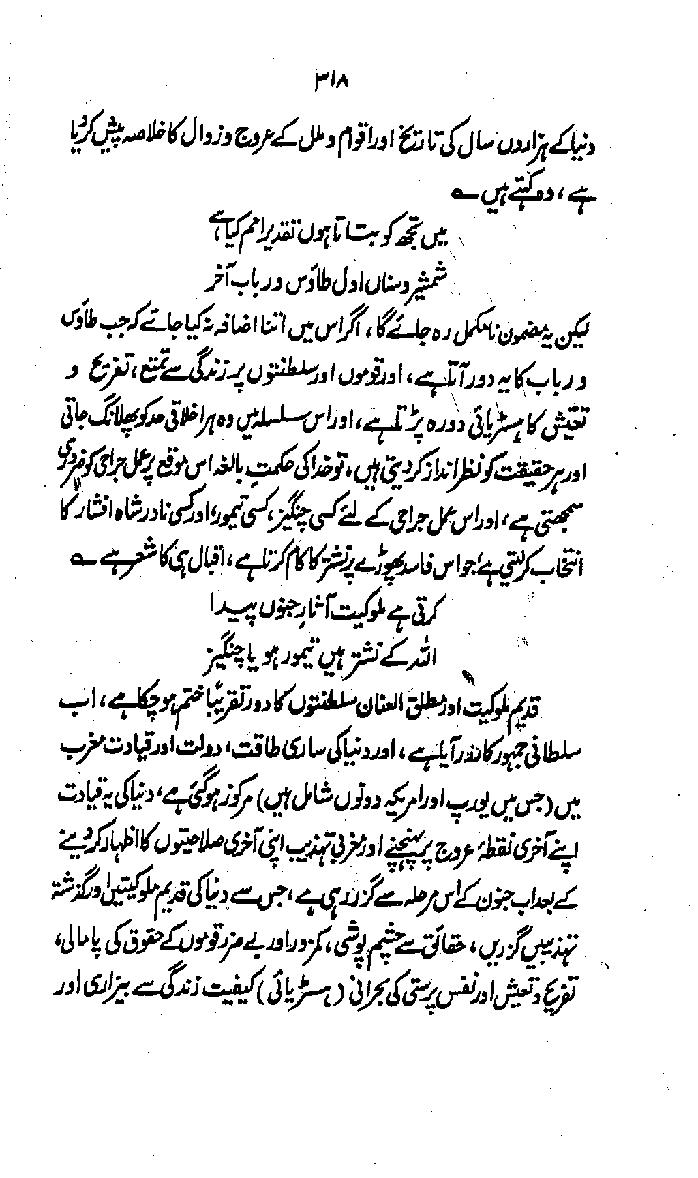 ۳۱۸
دنیا کے ہزاروں سال کی تاریخ اور اقوام و ملل کے عروج و زوال کا خلاصہ پیش کر دیا
ہے، وہ کہتے ہیں ؎
میں تجھ کو بتاتا ہوں تقدیر امم کیا ہے
شمشیر و سناں اول طاؤس و رباب آخر
لیکن یہ مضمون نامکمل رہ جائے گا، اگر اس میں اتنا اضافہ نہ کیا جائے کہ جب طاؤس
و رباب کا یہ دور آتا ہے، اور قوموں اور سلطنتوں پر زندگی سے تمتع، تفریح و
تعیش کا ہسٹریائی دورہ پڑتا ہے، اور اس سلسلہ میں وہ ہر اخلاقی حد کو پھلانگ جاتی
اور ہر حقیقت کو نظر انداز کر دیتی ہیں، تو خدا کی حکمت بالغہ اس موقع پر عمل جراحی کو ضروری
سمجھتی ہے، اور اس عمل جراحی کے لئے کسی چنگیز، کسی تیمور، اور کسی نادر شاہ افشار کا
انتخاب کر لیتی ہے، جو اس فاسد پھوڑے پر نشتر کا کام کرتا ہے، اقبال ہی کا شعر ہے ؎
کرتی ہے ملوکیت آثارِ جنوں پیدا
اللہ کے نشتر ہیں تیمور ہو یا چنگیز
قدیم ملوکیت اور مطلق العنان سلطنتوں کا دور تقریباً ختم ہو چکا ہے، اب
سلطانی جمہور کا دور آیا ہے، اور دنیا کی ساری طاقت، دولت اور قیادت مغرب
میں (جس میں یورپ اور امریکہ دونوں شامل ہیں) مرکوز ہو گئی ہے، دنیا کی یہ قیادت
اپنے آخری نقطۂ عروج پر پہنچنے اور مغربی تہذیب اپنی آخری صلاحیتوں کا اظہار کر دینے
کے بعد اب جنون کے اس مرحلہ سے گزر رہی ہے، جس سے دنیا کی قدیم ملوکیتیں اور گزشتہ
تہذیبیں گزریں، حقائق سے چشم پوشی، کمزور اور بے ضرر قوموں کے حقوق کی پامالی،
تفریح و تعیش اور نفس پرستی کی بحرانی (ہسٹریائی) کیفیت زندگی سے بیزاری اور